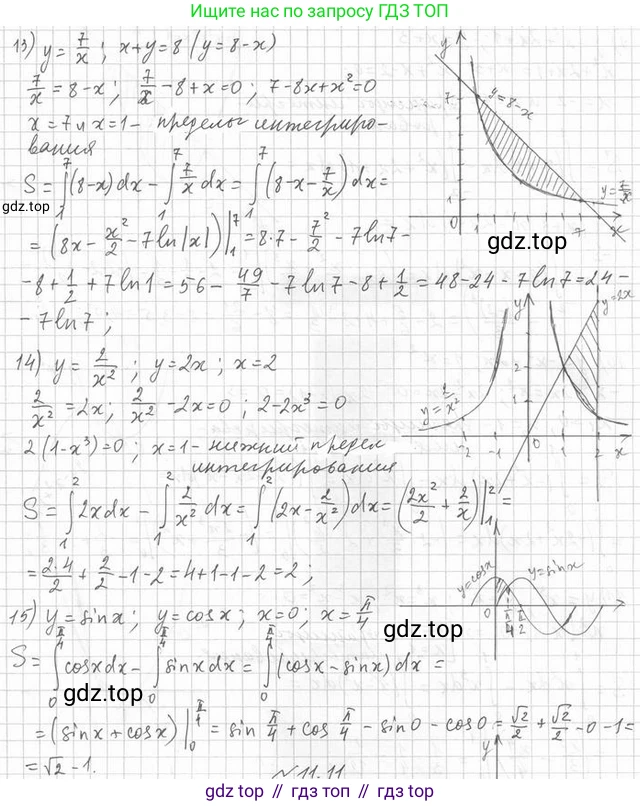 Ищите нас по запросу ГДЗ ТОП
13) y = 7/x ; x+y=8 (y=8-x)
7/x = 8-x ; 7/x -8+x=0 ; 7-8x+x²=0
x=7 и x=1- пределы интегриро-
вания
S = ∫₁⁷(8-x)dx - ∫₁⁷ 7/x dx = ∫₁⁷ (8-x-7/x)dx =
gdz.top
= (8x - x²/2 - 7ln|x|)|₁⁷ = 8·7 - 7²/2 - 7ln7 -
-8+1/2 +7ln1=56- 49/7 -7ln7-8+1/2 =48-24-7ln7=24-
-7ln7 ;
y
7
y=8-x
y=7/x
1
0
1
7
x
gdz.top
14) y = 2/x² ; y=2x ; x=2
2/x² =2x; 2/x² -2x=0 ; 2-2x³=0
2(1-x³)=0 ; x=1- нижний предел
интегрирования
S = ∫₁² 2xdx - ∫₁² 2/x² dx = ∫₁² (2x- 2/x²)dx = (2x²/2 + 2/x)|₁² =
= 2·4/2 + 2/2 -1-2=4+1-1-2=2 ;
y
y=2x
2
1
-2 -1 0 1 2 x
15) y=sinx; y=cosx ; x=0; x= π/4
S = ∫₀^(π/4) cosxdx - ∫₀^(π/4) sinxdx = ∫₀^(π/4) (cosx-sinx)dx =
gdz.top
= (sinx+cosx)|₀^(π/4) = sin π/4 + cos π/4 - sin0 - cos0 = √2/2 + √2/2 -0-1=
= √2 -1.
y=cosx
y=sinx
0 π/4 π/2
gdz.top
№11.11
y
Решебники gdz.top // gdz.top // gdz.top